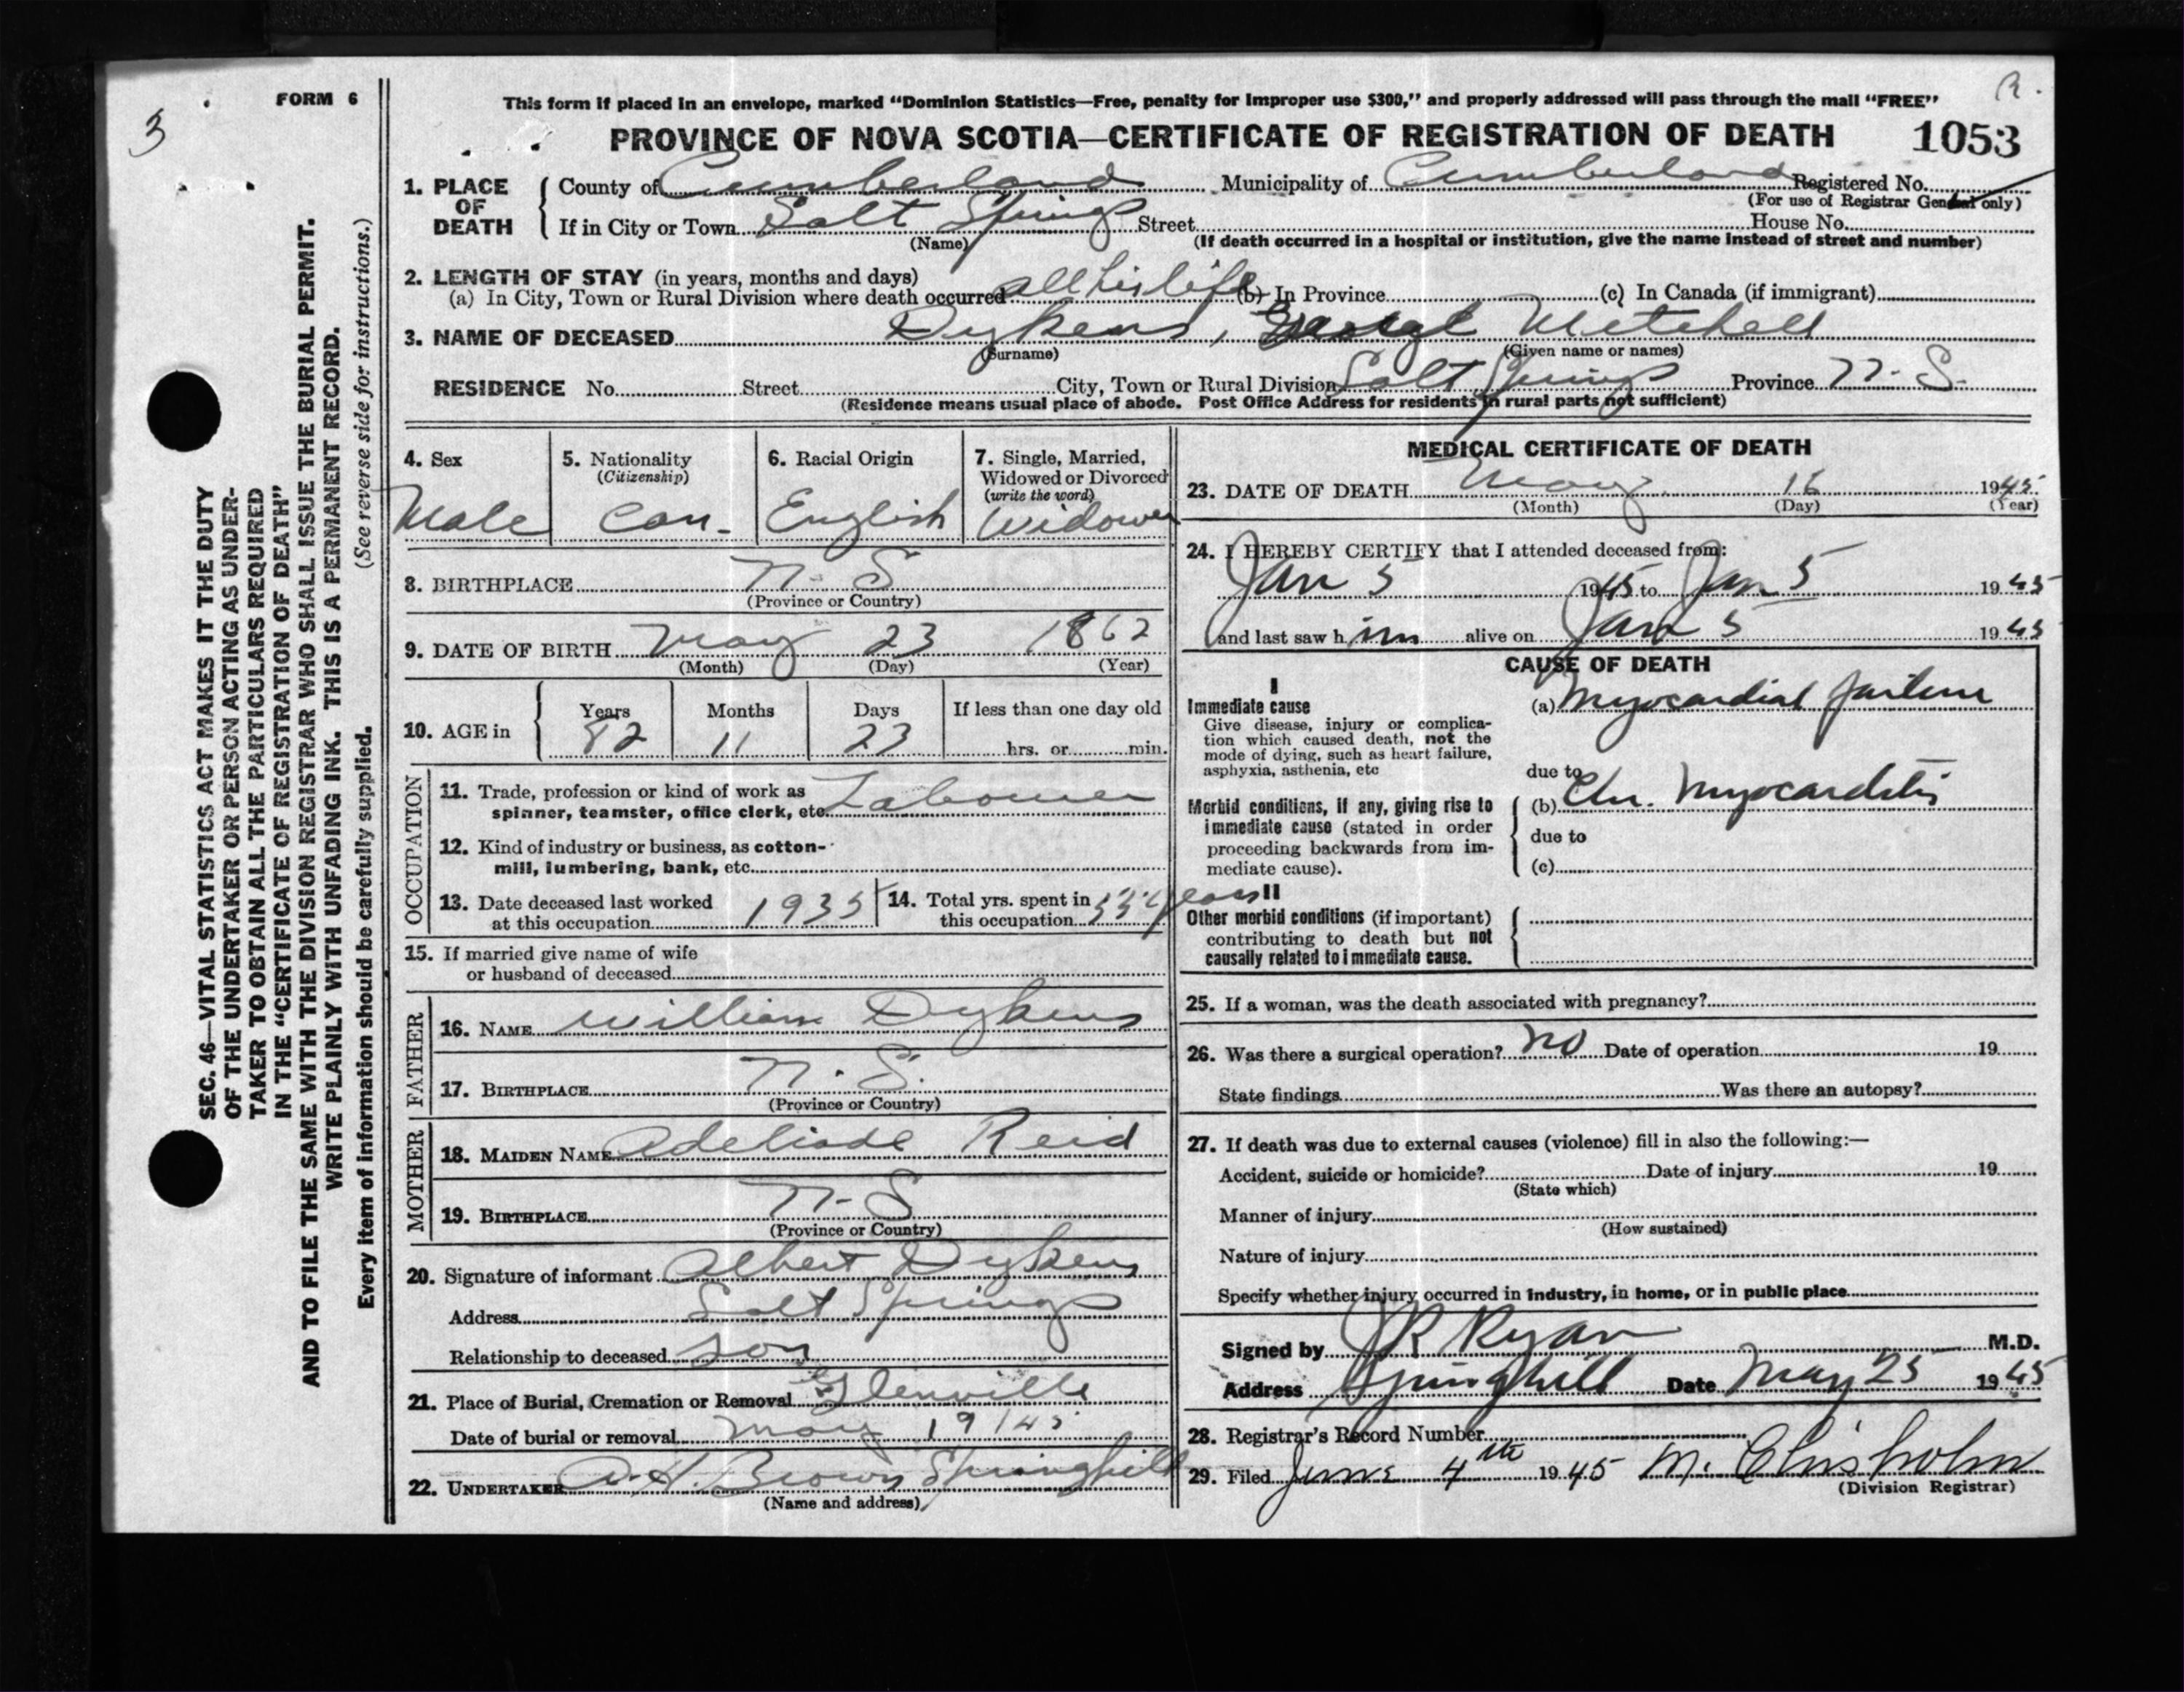 3
FORM 6
R.
SEC. 46—VITAL STATISTICS ACT MAKES IT THE DUTY
OF THE UNDERTAKER OR PERSON ACTING AS UNDER-
TAKER TO OBTAIN ALL THE PARTICULARS REQUIRED
IN THE "CERTIFICATE OF REGISTRATION OF DEATH"
AND TO FILE THE SAME WITH THE DIVISION REGISTRAR WHO SHALL ISSUE THE BURIAL PERMIT.
WRITE PLAINLY WITH UNFADING INK. THIS IS A PERMANENT RECORD.
Every item of information should be carefully supplied. (See reverse side for instructions.)
This form if placed in an envelope, marked "Dominion Statistics—Free, penalty for improper use $300," and properly addressed will pass through the mail "FREE"
PROVINCE OF NOVA SCOTIA—CERTIFICATE OF REGISTRATION OF DEATH 1053
1. PLACE OF DEATH County of Cumberland Municipality of Cumberland Registered No.
(For use of Registrar General only)
If in City or Town Salt Springs Street House No.
(Name) (If death occurred in a hospital or institution, give the name instead of street and number)
2. LENGTH OF STAY (in years, months and days)
(a) In City, Town or Rural Division where death occurred all his life (b) In Province (c) In Canada (if immigrant)
3. NAME OF DECEASED Dykens, George Mitchell
(Surname) (Given name or names)
RESIDENCE No. Street City, Town or Rural Division Salt Springs Province N. S.
(Residence means usual place of abode. Post Office Address for residents in rural parts not sufficient)
4. Sex
Male
5. Nationality
(Citizenship)
Can.
6. Racial Origin
English
7. Single, Married,
Widowed or Divorced
(write the word)
Widower
8. BIRTHPLACE N. S
(Province or Country)
9. DATE OF BIRTH May 23 1862
(Month) (Day) (Year)
10. AGE in Years Months Days If less than one day old
82 11 23 hrs. or min.
OCCUPATION
11. Trade, profession or kind of work as
spinner, teamster, office clerk, etc. Labourer
12. Kind of industry or business, as cotton-
mill, lumbering, bank, etc.
13. Date deceased last worked
at this occupation 1935
14. Total yrs. spent in
this occupation 55 years
15. If married give name of wife
or husband of deceased
FATHER
16. NAME William Dykens
17. BIRTHPLACE N. S.
(Province or Country)
MOTHER
18. MAIDEN NAME Adeliade Reid
19. BIRTHPLACE N. S
(Province or Country)
20. Signature of informant Albert Dykens
Address Salt Springs
Relationship to deceased son
21. Place of Burial, Cremation or Removal Glenville
Date of burial or removal May 19/45
22. UNDERTAKER A. H. Brown Springhill
(Name and address)
MEDICAL CERTIFICATE OF DEATH
23. DATE OF DEATH May 16 1945
(Month) (Day) (Year)
24. I HEREBY CERTIFY that I attended deceased from:
Jan 5 1945 to Jan 5 1945
and last saw him alive on Jan 5 1945
CAUSE OF DEATH
I
Immediate cause
Give disease, injury or complica-
tion which caused death, not the
mode of dying, such as heart failure,
asphyxia, asthenia, etc
(a) Myocardial failure
due to
Morbid conditions, if any, giving rise to
immediate cause (stated in order
proceeding backwards from im-
mediate cause).
(b) Chr. Myocarditis
due to
(c)
II
Other morbid conditions (if important)
contributing to death but not
causally related to immediate cause.
25. If a woman, was the death associated with pregnancy?
26. Was there a surgical operation? no Date of operation 19
State findings Was there an autopsy?
27. If death was due to external causes (violence) fill in also the following:—
Accident, suicide or homicide? Date of injury 19
(State which)
Manner of injury
(How sustained)
Nature of injury
Specify whether injury occurred in industry, in home, or in public place
Signed by J R Ryan M.D.
Address Springhill Date May 25 1945
28. Registrar's Record Number
29. Filed June 4th 1945 M. Chisholm
(Division Registrar)